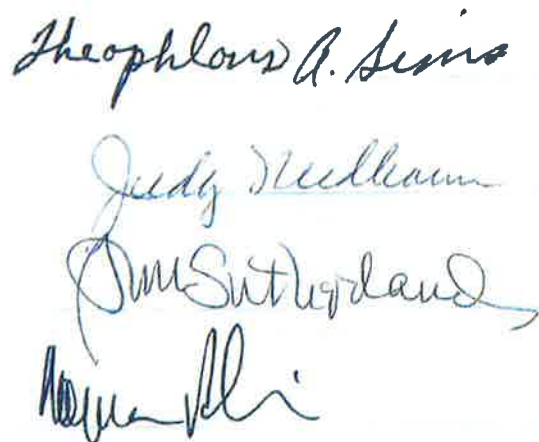 Theophlous A. Sims
Judy Needham
Ann Sutherland
Norman